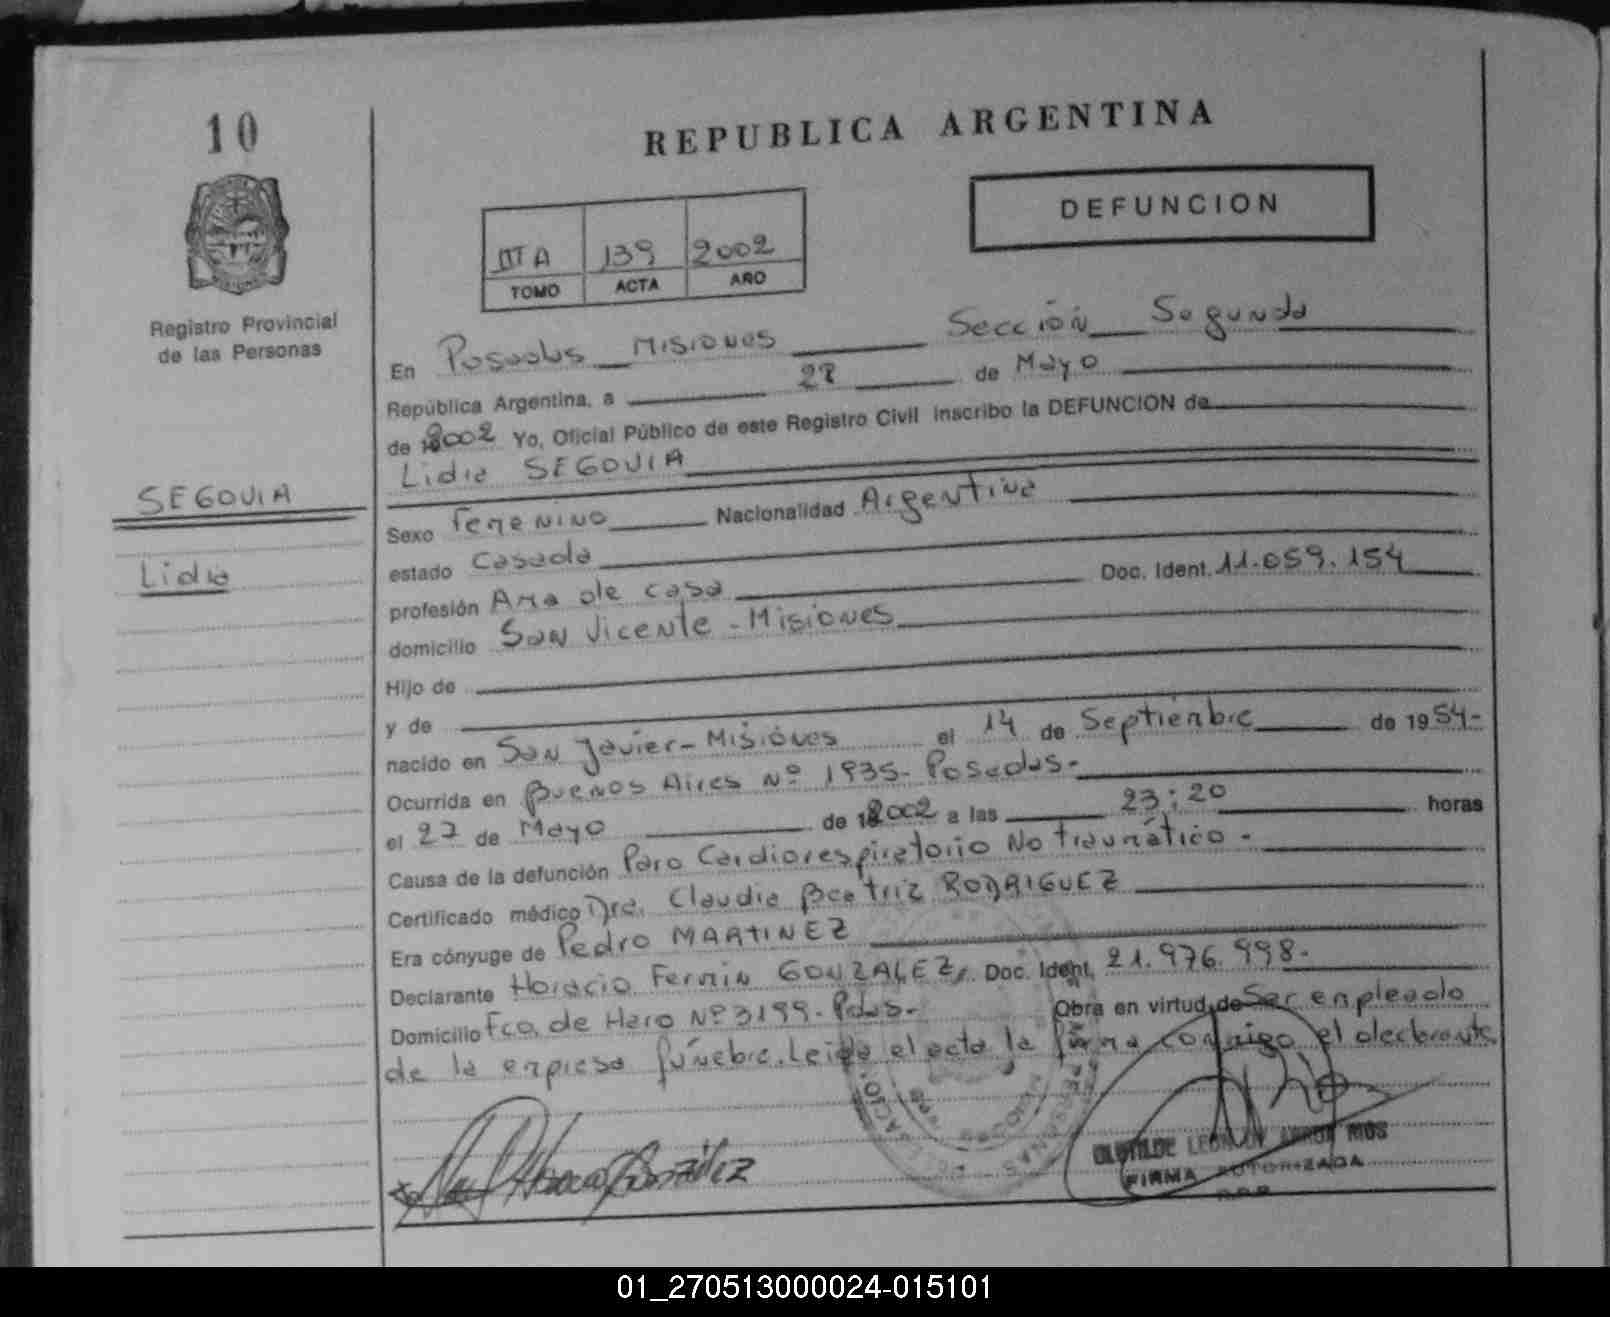 10
REPUBLICA ARGENTINA
DEFUNCION
IIT A 139 2002
TOMO ACTA AÑO
Registro Provincial
de las Personas
En Posadas Misiones Sección Segunda
República Argentina, a 28 de Mayo
de 2002 Yo, Oficial Público de este Registro Civil inscribo la DEFUNCION de
Lidia SEGOVIA
SEGOVIA
Lidia
Sexo Femenino Nacionalidad Argentina
estado Casada
profesión Ama de casa Doc. Ident. 11.059.154
domicilio San Vicente - Misiones
Hijo de
y de
nacido en San Javier - Misiones el 14 de Septiembre de 1954-
Ocurrida en Buenos Aires Nº 1935- Posadas-
el 27 de Mayo de 2002 a las 23:20 horas
Causa de la defunción Paro Cardiorespiratorio No traumático -
Certificado médico Dra. Claudia Beatriz RODRIGUEZ
Era cónyuge de Pedro MARTINEZ
Declarante Horacio Fermín GONZALEZ Doc. Ident. 21.976.998-
Domicilio Fco. de Haro Nº 3199- Pdas- Obra en virtud de Ser empleado
de la empresa fúnebre. Leida el acta la firma conmigo el declarante
González
FIRMA AUTORIZADA
01_270513000024-015101